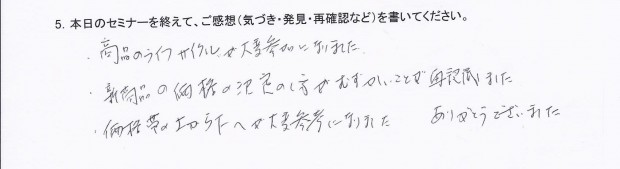 5. 本日のセミナーを終えて、ご感想（気づき・発見・再確認など）を書いてください。
・商品のライフサイクルが大変参加になりました
・新商品の価格の決定の仕方がむずかしいことが再認識しました
・価格帯の上から下へが大変参考になりました　ありがとうございました